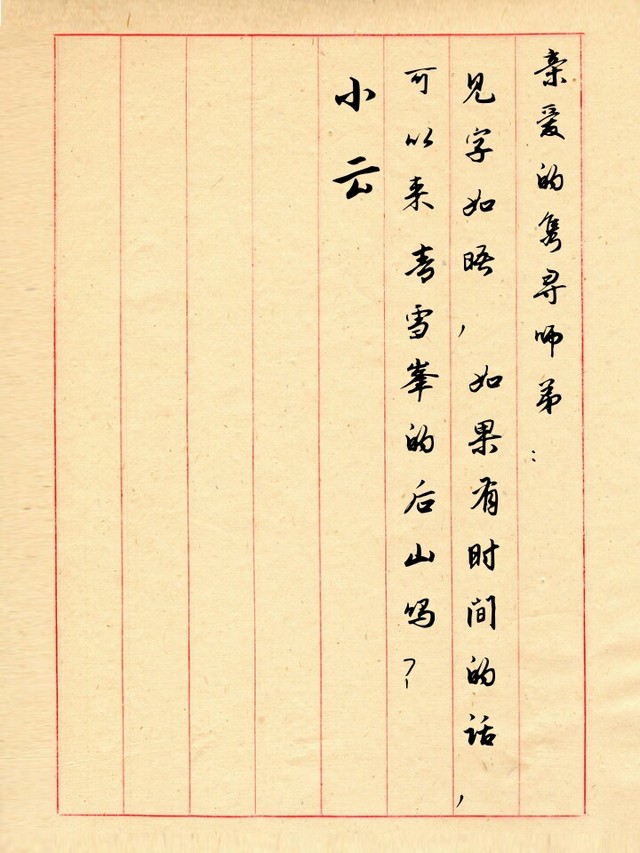 亲爱的隽寻师弟：
见字如晤，如果有时间的话，
可以来青雪峰的后山吗？
小云